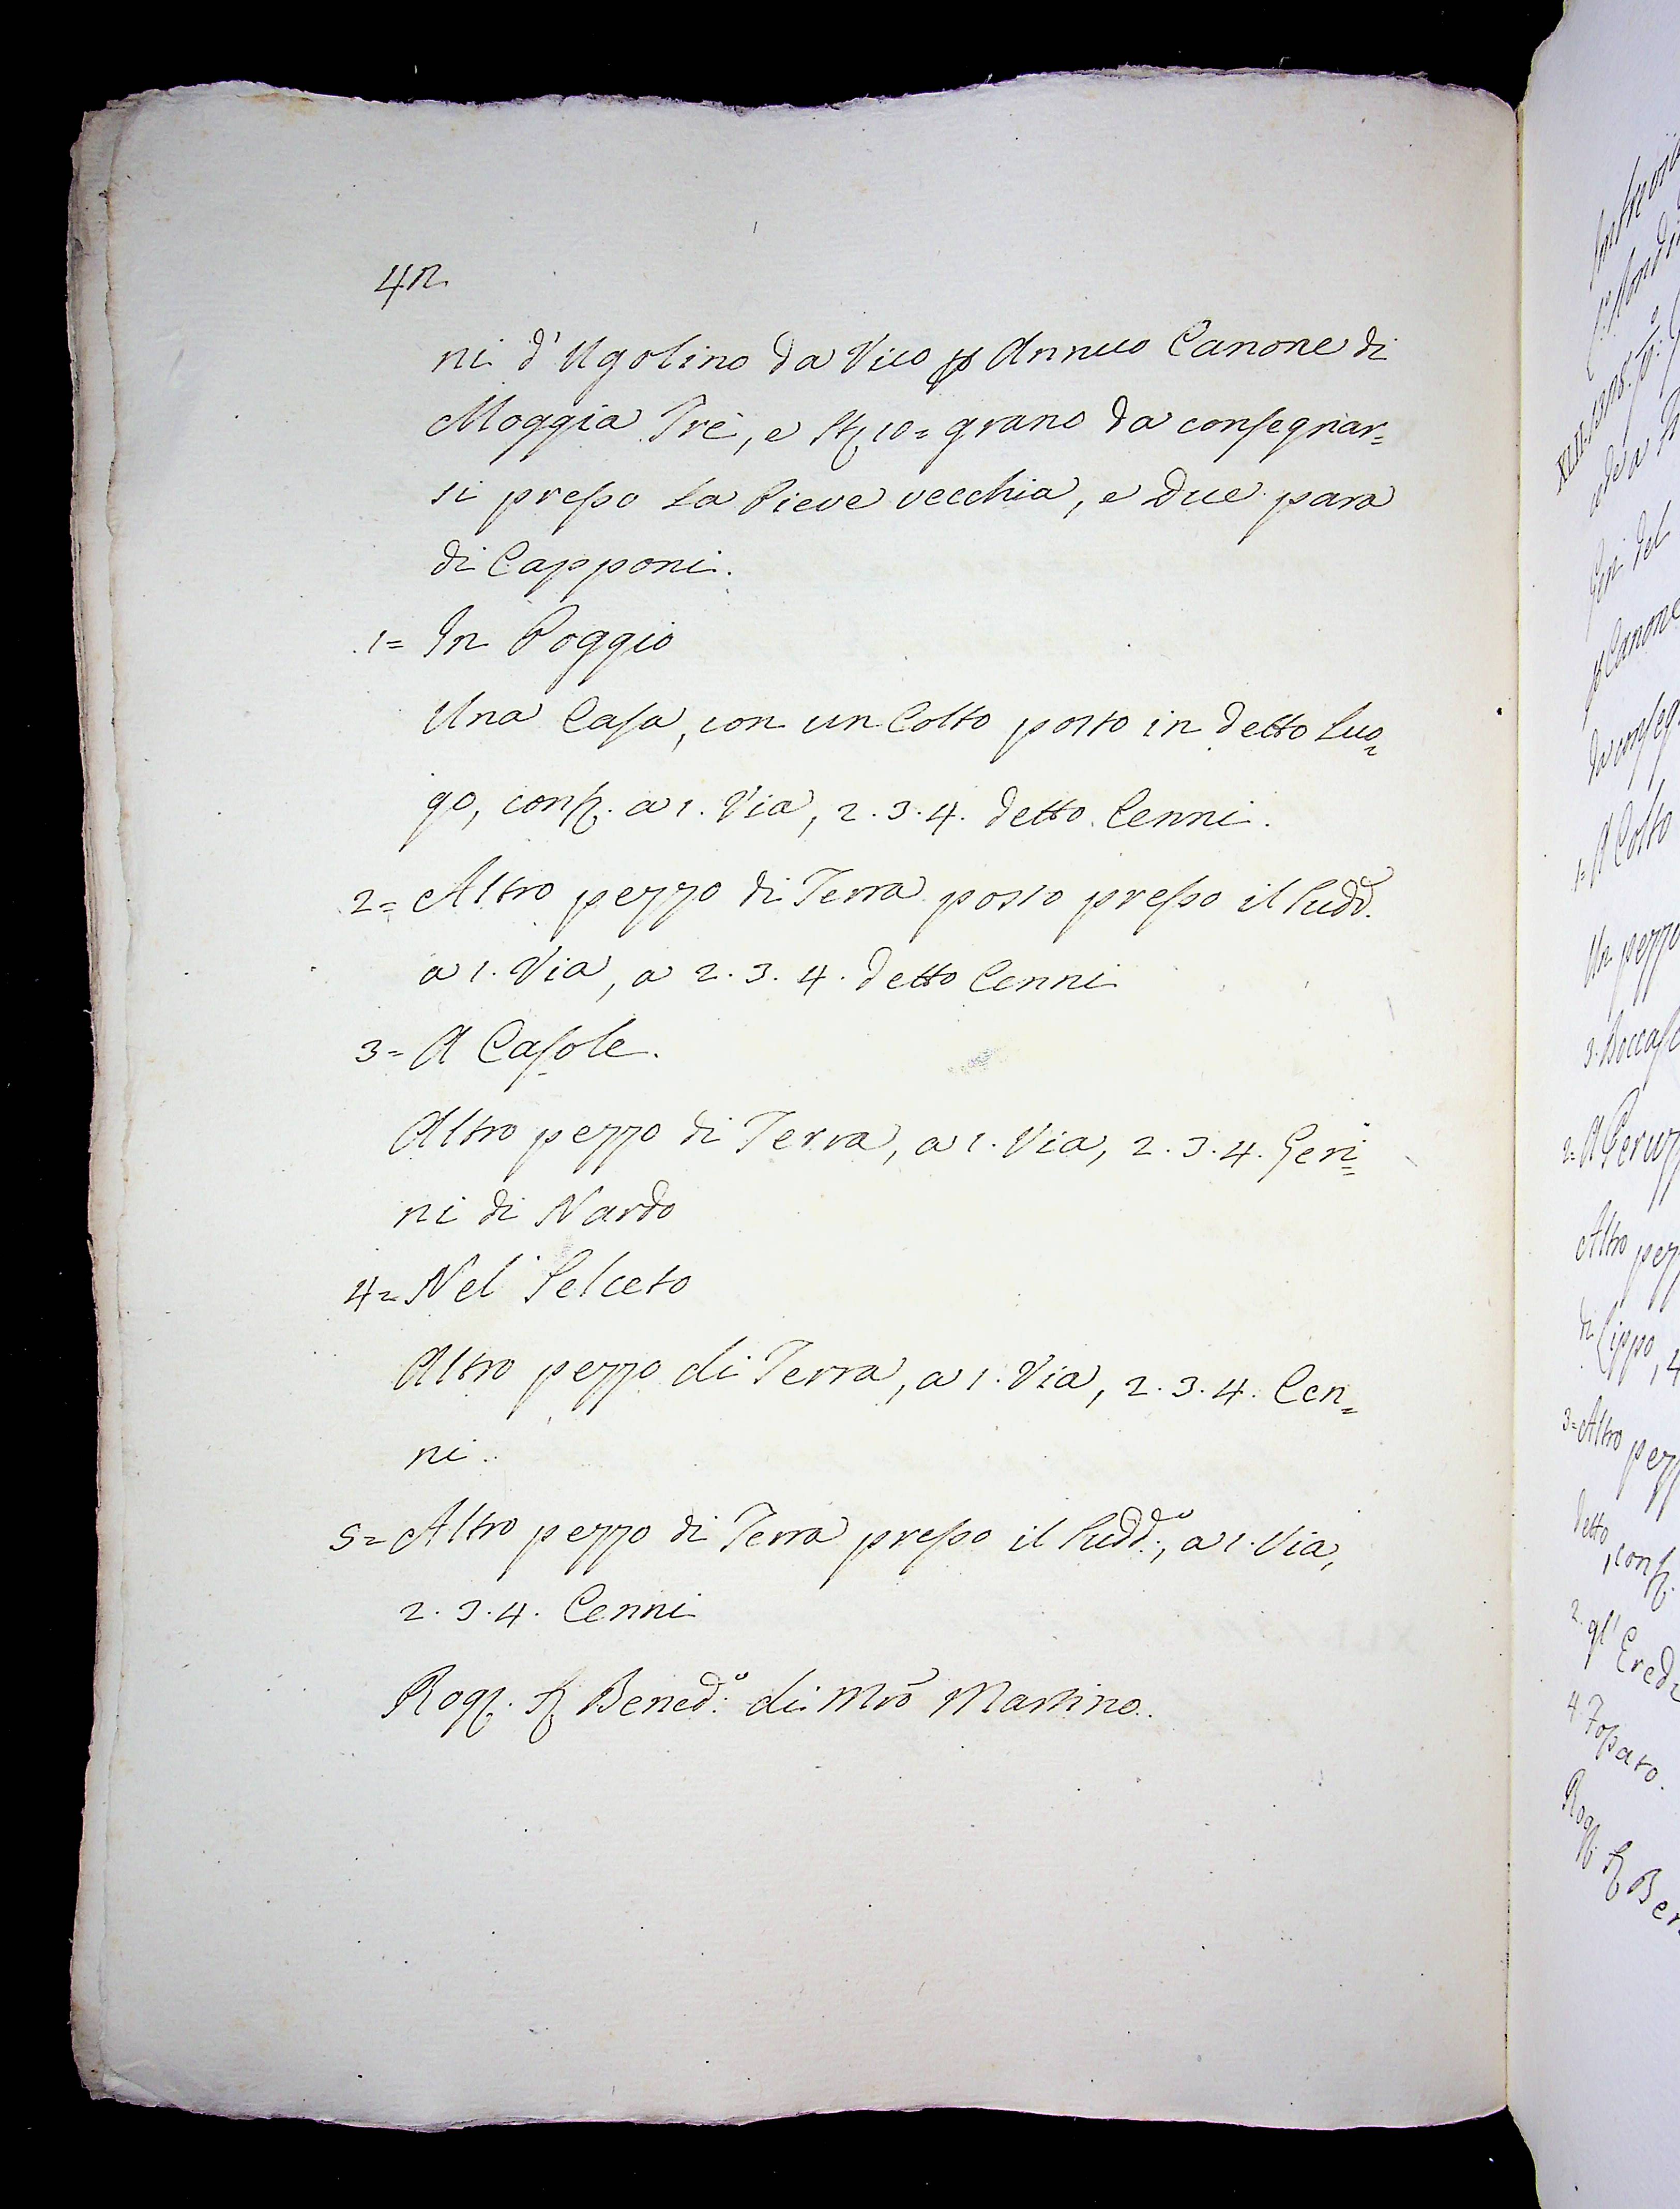 42
ni d'Ugolino da Vico p Annuo Canone di
Moggia Trè, e St. 10= grano da consegnar=
si presso la Pieve vecchia, e due para
di Capponi.
1= In Poggio
Una Casa, con un Colto posto in detto Luo=
go, conf. a 1. Via, 2. 3. 4. detto Cenni.
2= Altro pezzo di Terra posto presso il Sudd.o
a 1. Via, a 2. 3. 4. detto Cenni
3= A Casole.
Altro pezzo di Terra, a 1. Via, 2. 3. 4. Geri=
ni di Nardo
4= Nel Selceto
Altro pezzo di Terra, a 1. Via, 2. 3. 4. Cen=
ni.
5= Altro pezzo di Terra presso il Sudd.o, a 1. Via,
2. 3. 4. Cenni
Rog. S. Bened.o di Mro Martino.
XLII. 1398.
Geri del
p Canone
da conseg
1= A Colto
Un pezzo
2= A Peruz
Altro pez
di Lippo, 4
3= Altro pez
detto, conf.
2. gl' Ered
4. Fossato.
Rog. S. Ben